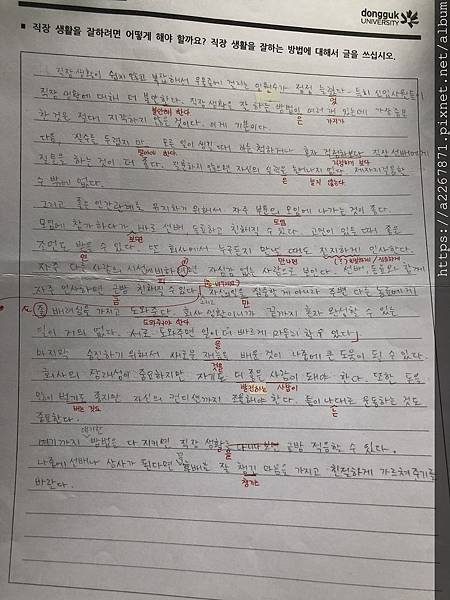 dongguk
UNIVERSITY
■ 직장 생활을 잘하려면 어떻게 해야 할까요? 직장 생활을 잘하는 방법에 대해서 글을 쓰십시오.
직장 생활이 쉽지 않고 불안해서 우울증에 걸리는 인원수가 점점 늘렸다. 특히 신입사원들이
직장 생활에 대해 더 불안한다. 직장 생활을 잘 하는 방법이 여러 개 있는데 가장 중요
불안해 한다
한 것은 절대 지각하지 않은 것이다. 이게 기본이다.
다음 실수를 두렵지 마. 모르는 일이 생길 때
두려워 하다
질문을 하는 것이 더 좋다. 질문하지 않으면 자신의 실력은 늘어나지 않다.
늘지 않는다
수 밖에 없다.
그리고 좋은 인간관계를 유지하기 위해서 자주 부름의 모임에 나가는 것이 좋다.
모임
모임에 참가하다가 바로 선배 동료하고 친해질 수 있다. 고민이 있을 때 좋은
조언도 받을 수 있다. 또 회사에서 누구든지 만날 때마다 친절하게 인사한다.
만나면
자주 다른 사람의 시선에 비하면 자신감 없는 사람으로 보인다. 선배, 동료와 함께
자주 인사하면 금방 친해질 수 있다.
배려심을 가지고 도와준다. 회사 생활이니까 끝까지 혼자 완성할 수 있는
도와줘야 한다
일이 거의 없다. 서로 도와주면 일이 더 빠르게 마무리 할 수 있다.
마지막 승진하기 위해서 새로운 재능을 배운 것이 나중에 큰 도움이 될 수 있다.
것은
회사의 장래성이 중요하지만 자기도 더 좋은 사람이 돼야 한다. 또한 돈을
발전하는 사람이
많이 벌기도 좋지만 자신의 컨디션까지 조율해야 한다. 틈이 나는대로 운동하는 것도
버는 것도
중요한다.
여기까지 방법은 다 지키면 직장 생활을 금방 적응할 수 있다.
나중에 선배나 상사가 된다면 후배를 잘 챙긴 마음을 가지고 친절하게 가르쳐 주기를
챙기는
바란다.
https://a2267871.pixnet.net/album